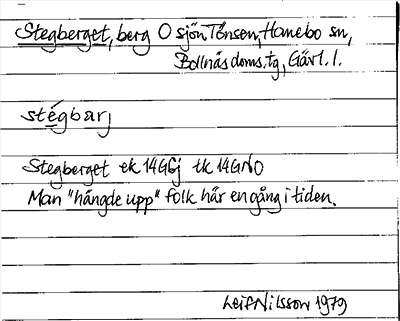 Stegberget, berg O sjön Tönsen, Hanebo sn,
Bollnäs doms. tg, Gävl. l.
stégbarj
Stegberget ek 14G6j tk 14GNO
Man "hängde upp" folk här en gång i tiden.
Leif Nilsson 1979